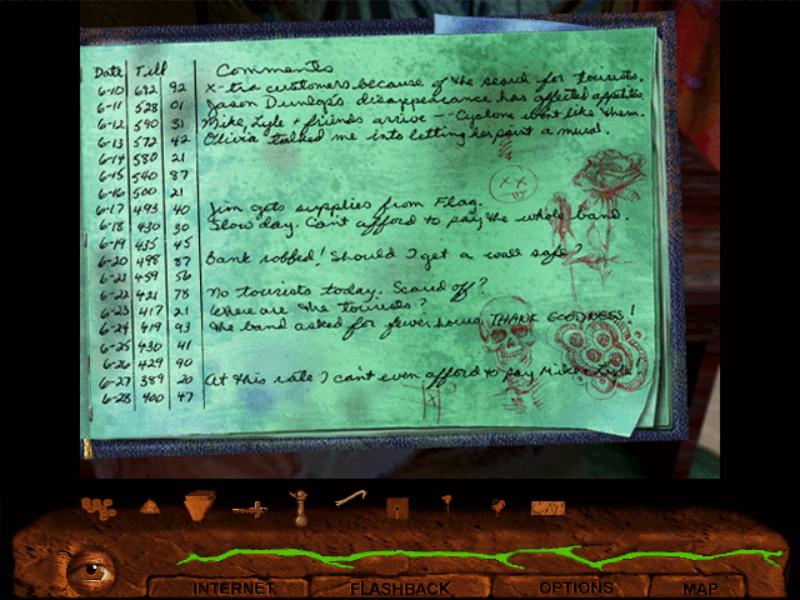 Date Till Comments
6-10 692 92 X-tra customers because of the search for tourists.
6-11 528 01 Jason Dunlop's disappearance has affected appetites.
6-12 590 31 Mike, Lyle + friends arrive -- Cyclone wont like them.
6-13 572 42 Olivia talked me into letting her paint a mural.
6-14 580 21
6-15 540 87
6-16 500 21
6-17 493 40 Jim gets supplies from Flag.
6-18 430 30 Slow day. Can't afford to pay the whole band.
6-19 435 45
6-20 498 87 Bank robbed! Should I get a wall safe?
6-21 459 56
6-22 421 78 No tourists today. Scared off?
6-23 417 21 Where are the tourists?
6-24 419 93 The band asked for fewer hours, THANK GOODNESS!
6-25 430 41
6-26 429 90
6-27 389 20 At this rate I can't even afford to pay Mike + Lyle!
6-28 400 47
INTERNET FLASHBACK OPTIONS MAP